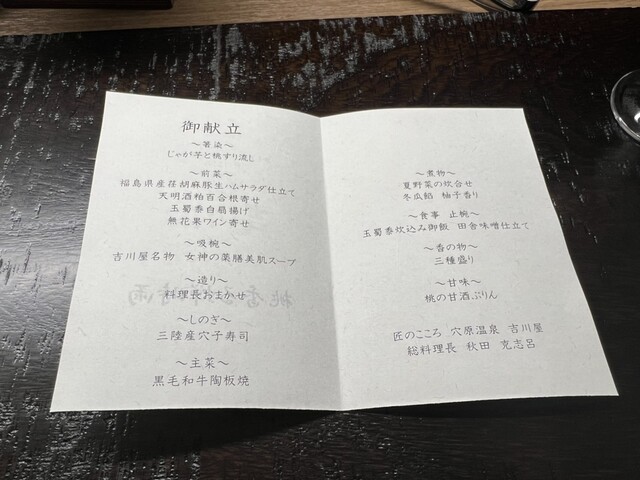 御献立
～箸染～
じゃが芋と桃すり流し
～前菜～
福島県産荏胡麻豚生ハムサラダ仕立て
天明酒粕百合根寄せ
玉蜀黍白扇揚げ
無花果ワイン寄せ
～吸椀～
吉川屋名物 女神の薬膳美肌スープ
～造り～
料理長おまかせ
～しのぎ～
三陸産穴子寿司
～主菜～
黒毛和牛陶板焼
～煮物～
夏野菜の炊合せ
冬瓜餡 柚子香り
～食事 止椀～
玉蜀黍炊込み御飯 田舎味噌仕立て
～香の物～
三種盛り
～甘味～
桃の甘酒ぷりん
匠のこころ 穴原温泉 吉川屋
総料理長 秋田 克志呂